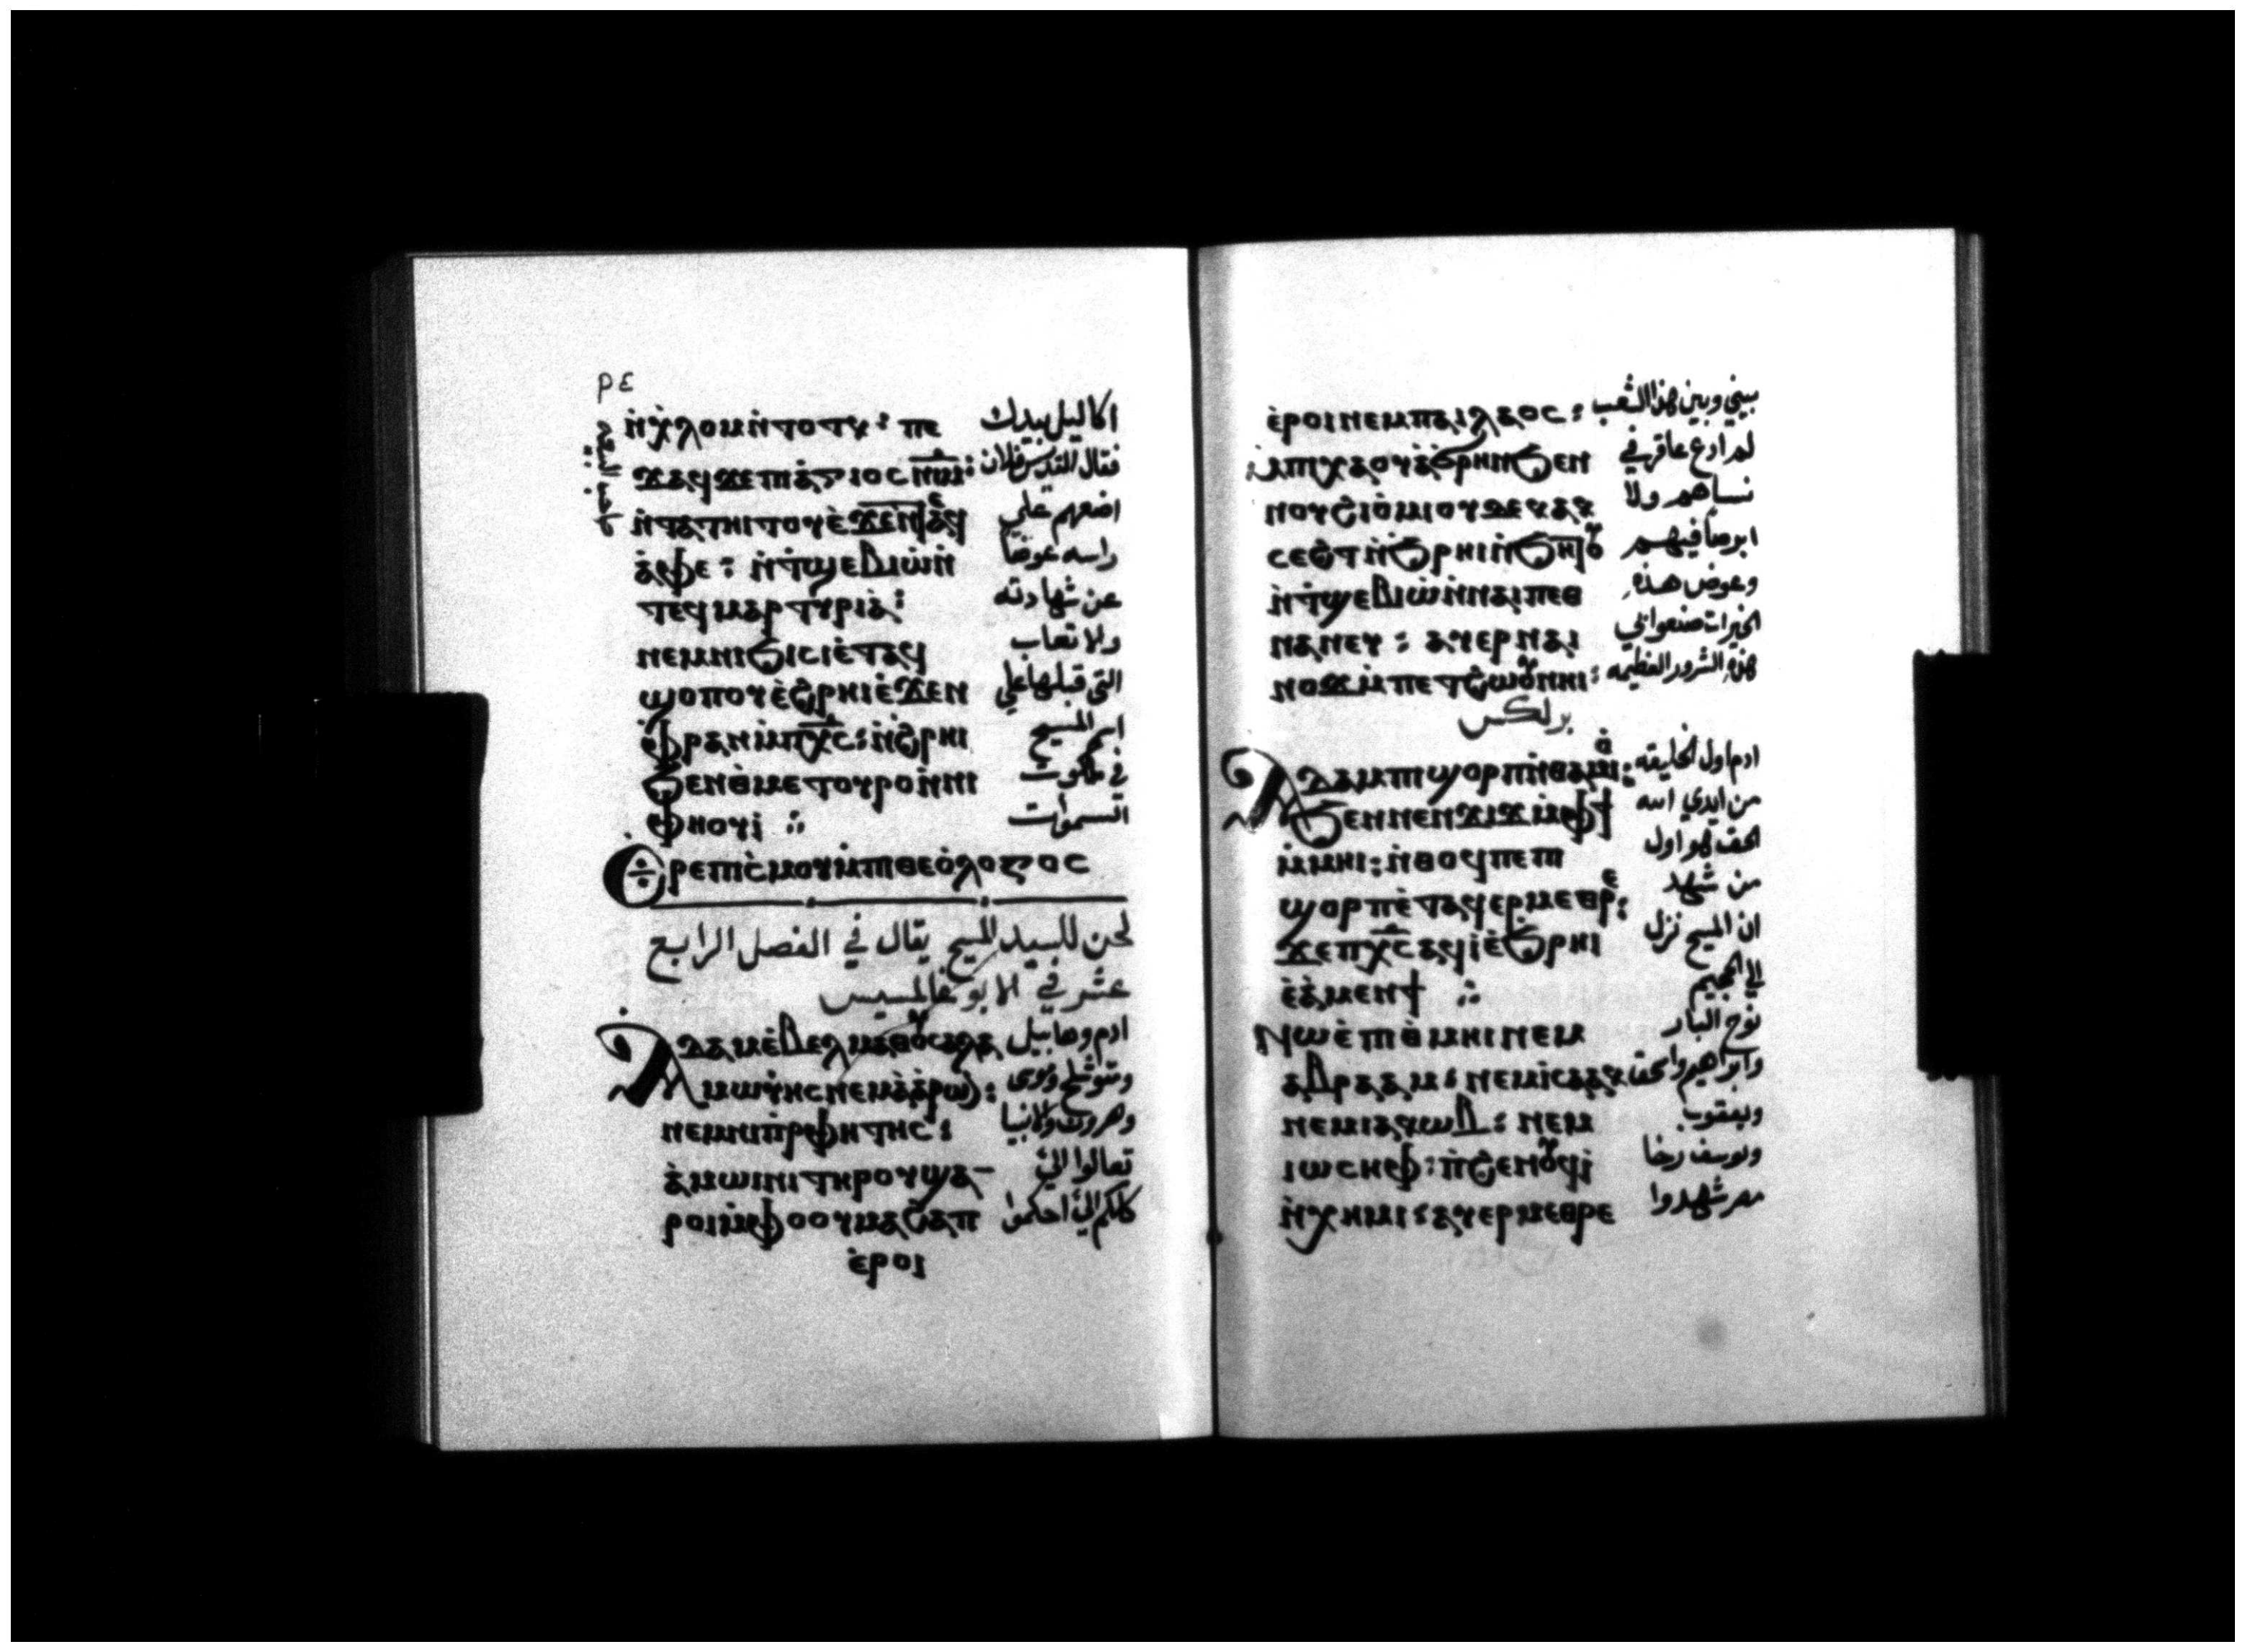 ⲣⲉ
ⲛ̇ⲭ̇ⲗⲟⲙⲛ̇ⲧⲟⲧⲕ: ⲡⲉ اكاليل بيدك
ϫⲁϥϫⲉⲡⲓⲁ̇ⲅⲓⲟⲥ ⲛⲓⲙ: فقال القديس فلان
ⲛ̇ⲧⲁⲧⲏⲓⲧⲟⲩⲉ̇ϫⲉⲛⲧⲉϥ اضعهم علي
ⲁ̇ⲫⲉ: ⲛ̇ⲧ̇ϣⲉⲃⲓⲱ̇ⲛ̇ راسه عوضا
ⲧⲉϥⲙⲁⲣⲧⲩⲣⲓⲁ̇: عن شهادته
ⲛⲉⲙⲛⲓϧⲓⲥⲓⲉ̇ⲧⲁϥ ولاتعاب
ϣⲟⲡⲟⲩⲉ̇ϩ̇ⲣⲏⲓⲉ̇ϫⲉⲛ التي قبلها علي
ⲫ̇ⲣⲁⲛⲙ̇ⲡⲭ̅ⲥ̅: ⲛ̇ϩ̇ⲣⲏⲓ اسم المسيح
ϧⲉⲛⲑ̇ⲙⲉⲧⲟⲩⲣⲟⲛ̇ⲛⲓ في ملكوت
ⲫⲏⲟⲩⲓ̇ ⁘ السموات
ⲫ̇ⲣⲉⲡⲓⲥ̇ⲙⲟⲩⲙ̇ⲡⲓⲑⲉⲟ̇ⲗⲟⲅⲟⲥ
لحن للسيد المسيح يقال في الفصل الرابع
عشر في الابوغالمسيس
ⲁ̇ⲇⲁⲙⲉ̇ⲃⲉⲗⲙⲁⲑⲟⲩⲥⲁⲗⲁ ادم وهابيل
ⲙⲱⲩ̇ⲥⲏⲥⲛⲉⲙⲁ̇ⲁ̇ⲣⲱⲛ: ومتوشلح وموسى
ⲛⲉⲙⲛⲓⲡ̇ⲣⲟⲫⲏⲧⲏⲥ: وهرون والانبيا
ⲁ̇ⲙⲱⲓⲛⲓⲧⲏⲣⲟⲩϣⲁ- تعالوا اليّ
ⲣⲟⲓⲙ̇ⲫⲟⲟⲩⲙⲁϩⲁⲡ كلكم اليوم احكموا
ⲉ̇ⲣⲟⲓ
ⲉ̇ⲣⲟⲓⲛⲉⲙⲡⲁⲓⲗⲁⲟⲥ: بيني وبين هذا الشعب
ⲙ̇ⲡⲓⲭⲁⲟⲩⲁ̇ϭⲣⲏⲛϧⲉⲛ لم ادع عاقر في
ⲛⲟⲩϩⲓⲟ̇ⲙⲓⲟⲩⲇⲉⲕⲁⲕ نساهم ولا
ⲥⲉϩⲧⲛ̇ϧ̇ⲣⲏⲓⲛ̇ϧⲏⲧⲟⲩ ابرصا فيهم
ⲛ̇ⲧ̇ϣⲉⲃⲓⲱ̇ⲛ̇ⲛⲁⲓⲡⲉⲑ وعوض هذه
ⲛⲁⲛⲉⲩ: ⲁⲩⲉⲣⲛⲁⲓ الخيرات صنعوا بي
ⲛⲟϫⲙ̇ⲡⲉⲧϩⲱⲟⲩⲛⲏⲓ: هذه الشرور العظيمه
برلكس
ⲁⲇⲁⲙⲡⲓϣⲟⲣⲡⲛ̇ⲑⲁⲙⲓⲟ̇: ادم اول الخليقه
ϧⲉⲛⲛⲉⲛϫⲓϫⲙ̇ⲫϯ من ايدي الله
ⲙ̇ⲙⲏⲓ: ⲛ̇ⲑⲟϥⲡⲉⲡⲓ الحق هو اول
ϣⲟⲣⲡⲉ̇ⲧⲁϥⲉⲣⲙⲉⲑⲣⲉ: من شهد
ϫⲉⲡⲭ̅ⲥ̅ⲁϥⲓ̇ⲉ̇ϧ̇ⲣⲏⲓ ان المسيح نزل
ⲉ̇ⲁ̇ⲙⲉⲛϯ ⁘ الي الجحيم
ⲛⲱⲉ̇ⲡⲓⲑ̇ⲙⲏⲓⲛⲉⲙ نوح البار
ⲁⲃⲣⲁⲁⲙ: ⲛⲉⲙⲓ̇ⲥⲁⲁⲕ وابراهيم واسحق
ⲛⲉⲙⲓⲁⲕⲱⲃ: ⲛⲉⲙ ويعقوب
ⲓⲱⲥⲏⲫ: ⲡ̇ϩⲉⲛⲟⲩϥⲓ ويوسف رخا
ⲛ̇ⲭⲏⲙⲓ: ⲁⲩⲉⲣⲙⲉⲑⲣⲉ مصر شهدوا